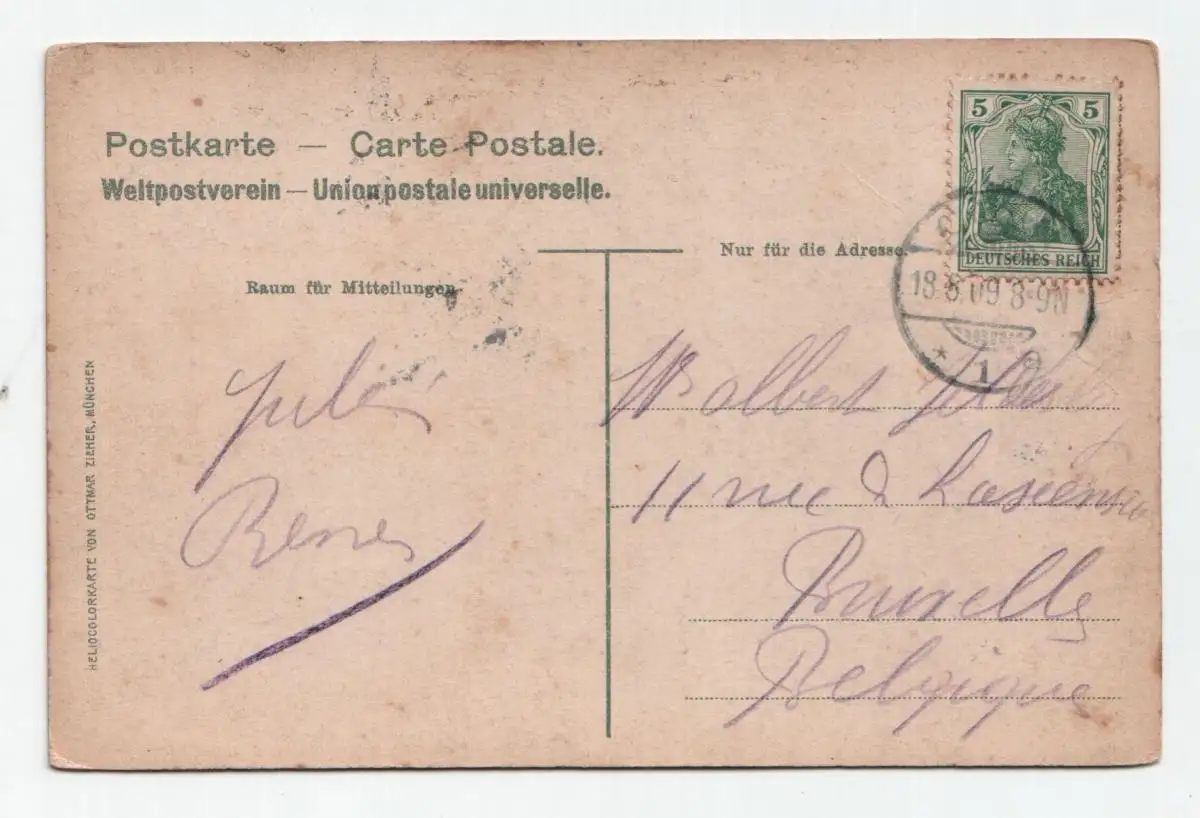 Postkarte — Carte Postale.
Weltpostverein — Union postale universelle.
5 5
DEUTSCHES REICH
Nur für die Adresse.
Raum für Mitteilungen
18 8 09 8-9N
* 1
albert
11 rue d
Bruxelles
Belgique
HELIOCOLORKARTE VON OTTMAR ZIEHER, MÜNCHEN